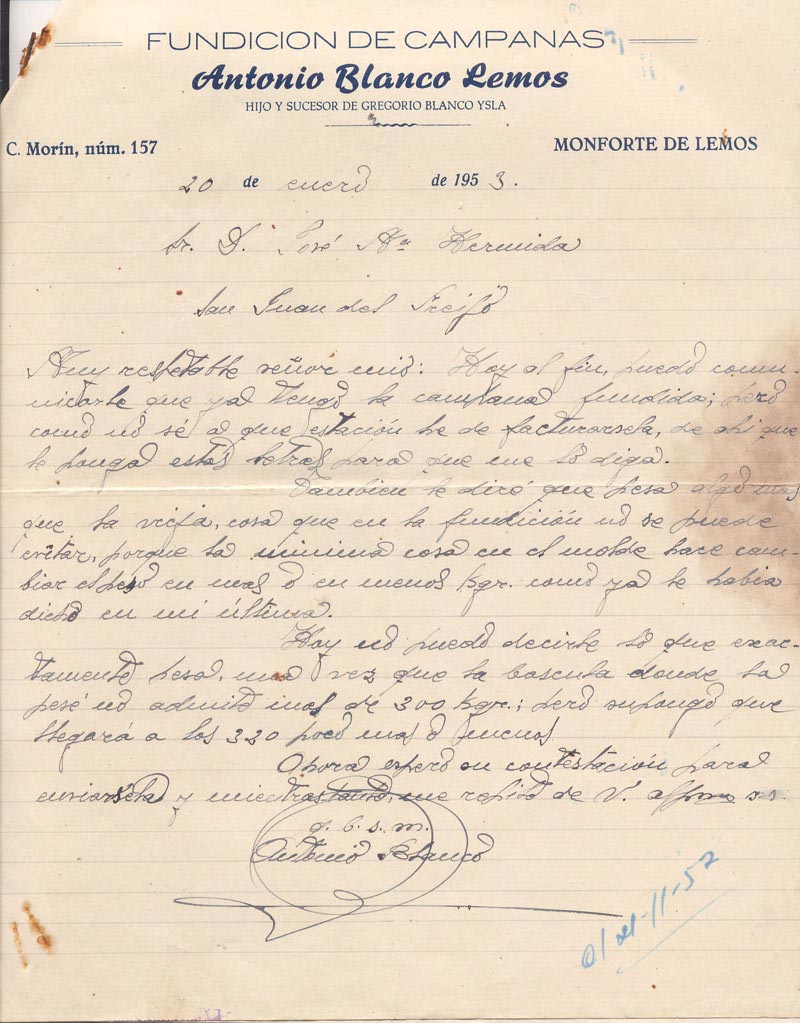 FUNDICION DE CAMPANAS
Antonio Blanco Lemos
HIJO Y SUCESOR DE GREGORIO BLANCO YSLA
C. Morín, núm. 157
MONFORTE DE LEMOS
20 de enero de 1953.
Sr. D. José Mª Hermida
San Juan del Freijo
Muy respetable señor mio: Hoy al fin, puedo comu-
nicarle que ya tengo la campana fundida; pero
como no sé a que estación he de facturarsela, de ahi que
le ponga estas letras para que me lo diga.
Tambien le diré que pesa algo mas
que la vieja, cosa que en la fundición no se puede
evitar, porque la minima cosa en el molde hace cam-
biar el peso en mas o en menos Kgr. como ya le habia
dicho en mi última.
Hoy no puedo decirle lo que exac-
tamente pesa, una vez que la bascula donde la
pesé no admite mas de 300 Kgr.; pero supongo que
llegará a los 320 poco mas o menos.
Ahora espero su contestación para
enviarsela y mientras tanto, me repito de V. affmo s.s.
q. b. s. m.
Antonio Blanco